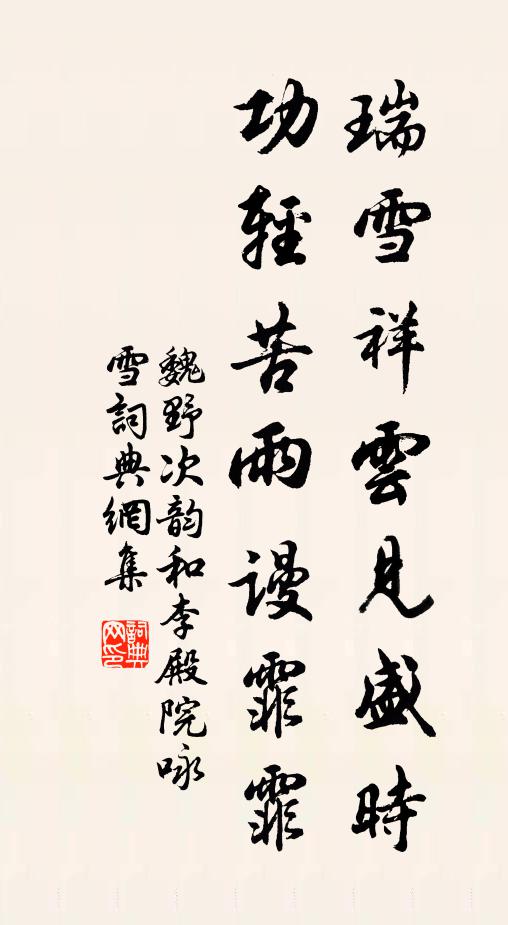 瑞雪祥雲見盛時
功輕苦雨謾霏霏
魏野次韵和李殿院咏
雪詞典網集
詞典网印